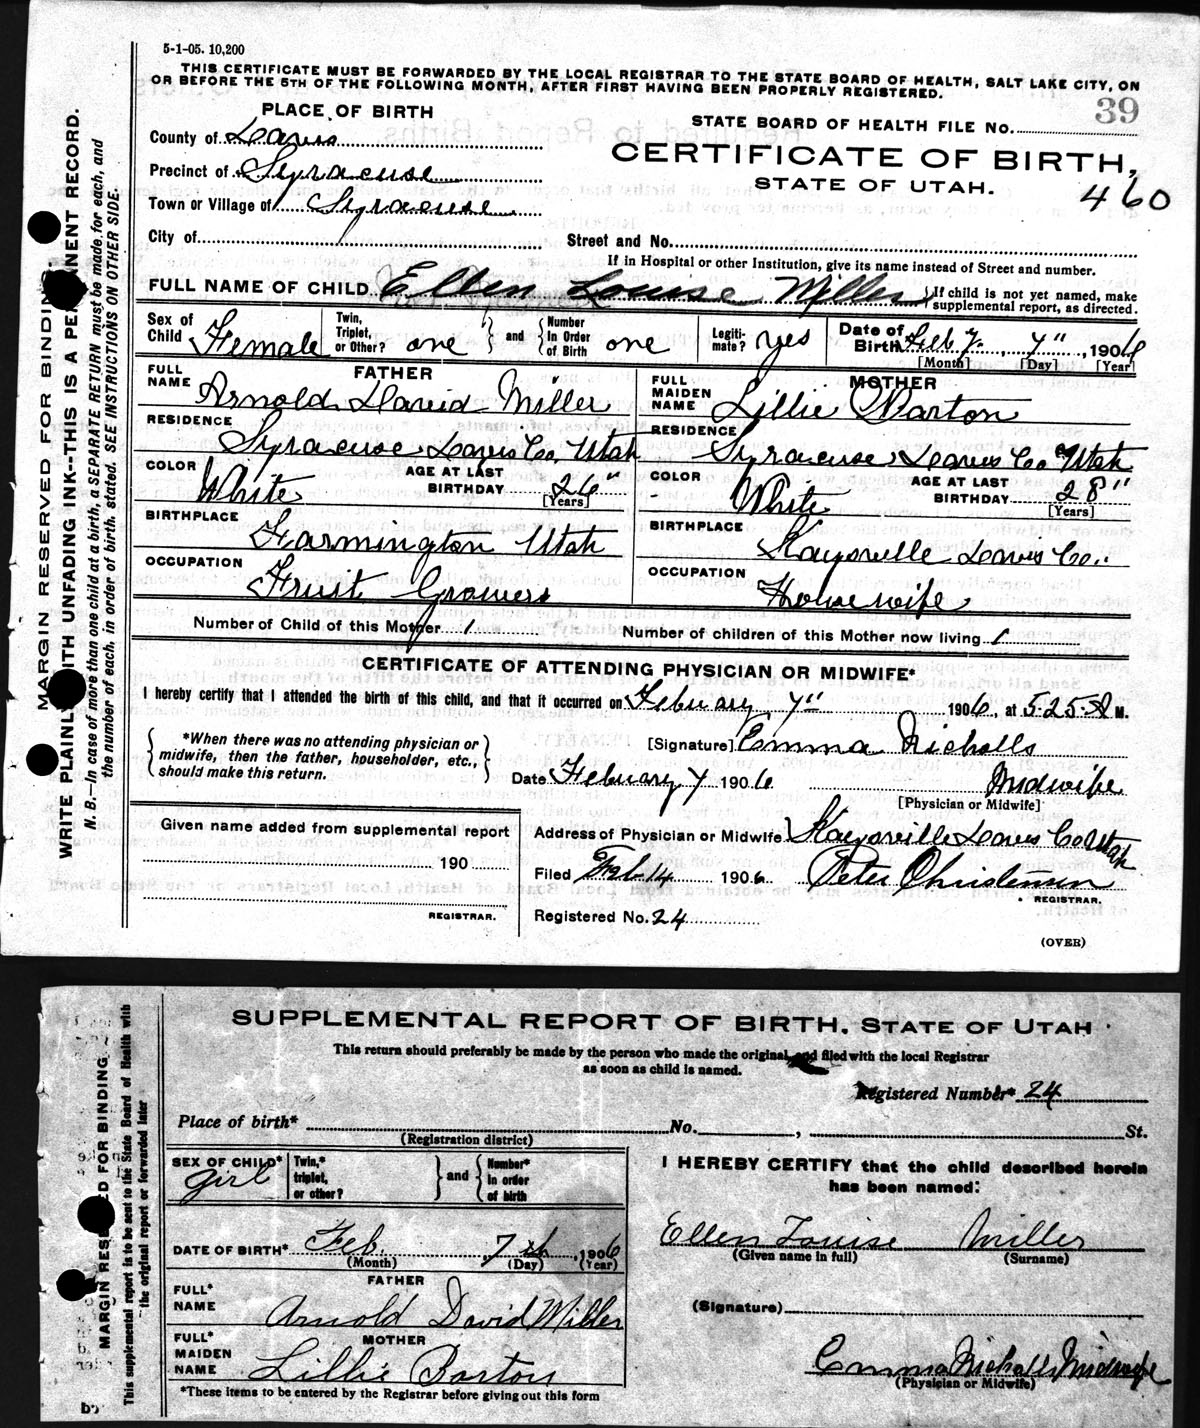 5-1-05. 10,200
THIS CERTIFICATE MUST BE FORWARDED BY THE LOCAL REGISTRAR TO THE STATE BOARD OF HEALTH, SALT LAKE CITY, ON
OR BEFORE THE 5TH OF THE FOLLOWING MONTH, AFTER FIRST HAVING BEEN PROPERLY REGISTERED.
39
PLACE OF BIRTH
STATE BOARD OF HEALTH FILE NO.
County of Davis
CERTIFICATE OF BIRTH,
Precinct of Syracuse
STATE OF UTAH.
460
Town or Village of Syracuse
City of
Street and No.
If in Hospital or other Institution, give its name instead of Street and number.
FULL NAME OF CHILD Ellen Louise Miller { If child is not yet named, make supplemental report, as directed.
Sex of Child Female
Twin, Triplet, or Other? one } and { Number In Order of Birth one
Legiti-mate? yes
Date of Birth Feby. 7", 1906
[Month] [Day] [Year]
FATHER
FULL NAME Arnold David Miller
RESIDENCE Syracuse Davis Co. Utah
COLOR White
AGE AT LAST BIRTHDAY 26"
[Years]
BIRTHPLACE Farmington Utah
OCCUPATION Fruit Grower
MOTHER
FULL MAIDEN NAME Lillie Barton
RESIDENCE Syracuse Davis Co Utah
COLOR White
AGE AT LAST BIRTHDAY 28"
[Years]
BIRTHPLACE Kaysville Davis Co..
OCCUPATION Housewife
Number of Child of this Mother 1
Number of children of this Mother now living 1
CERTIFICATE OF ATTENDING PHYSICIAN OR MIDWIFE*
I hereby certify that I attended the birth of this child, and that it occurred on February 7" 1906, at 5.25. A M.
{ *When there was no attending physician or
midwife, then the father, householder, etc.,
should make this return. }
[Signature] Emma Nicholls
Date February 7 1906
Midwife
[Physician or Midwife]
Given name added from supplemental report
190
REGISTRAR.
Address of Physician or Midwife Kaysville Davis Co Utah
Filed Feb 14 1906 Peter Christensen
REGISTRAR.
Registered No. 24
(OVER)
MARGIN RESERVED FOR BINDING.
WRITE PLAINLY WITH UNFADING INK--THIS IS A PERMANENT RECORD.
N. B.—In case of more than one child at a birth, a SEPARATE RETURN must be made for each, and
the number of each, in order of birth, stated. SEE INSTRUCTIONS ON OTHER SIDE.
SUPPLEMENTAL REPORT OF BIRTH. STATE OF UTAH
This return should preferably be made by the person who made the original, and filed with the local Registrar
as soon as child is named.
Registered Number* 24
Place of birth* No. , St.
(Registration district)
SEX OF CHILD* girl
Twin,* triplet, or other? } and { Number* in order of birth
I HEREBY CERTIFY that the child described herein
has been named:
DATE OF BIRTH* Feb. 7th, 1906
(Month) (Day) (Year)
Ellen Louise Miller
(Given name in full) (Surname)
FATHER
FULL* NAME Arnold David Miller
(Signature)
MOTHER
FULL* MAIDEN NAME Lillie Barton
Emma Nicholls Midwife
(Physician or Midwife)
*These items to be entered by the Registrar before giving out this form
MARGIN RESERVED FOR BINDING
This supplemental report is to be sent to the State Board of Health with
the original report or forwarded later